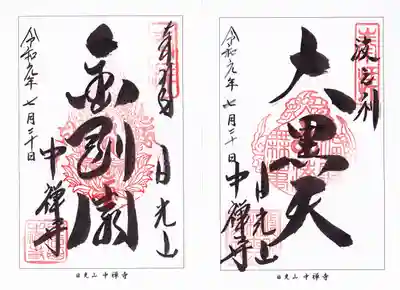 金剛扇
日光山
中禅寺
令和元年 七月二十日
日光山 中禅寺
波之利
大黒天
日光山
中禅寺
令和元年 七月二十日
日光山 中禅寺